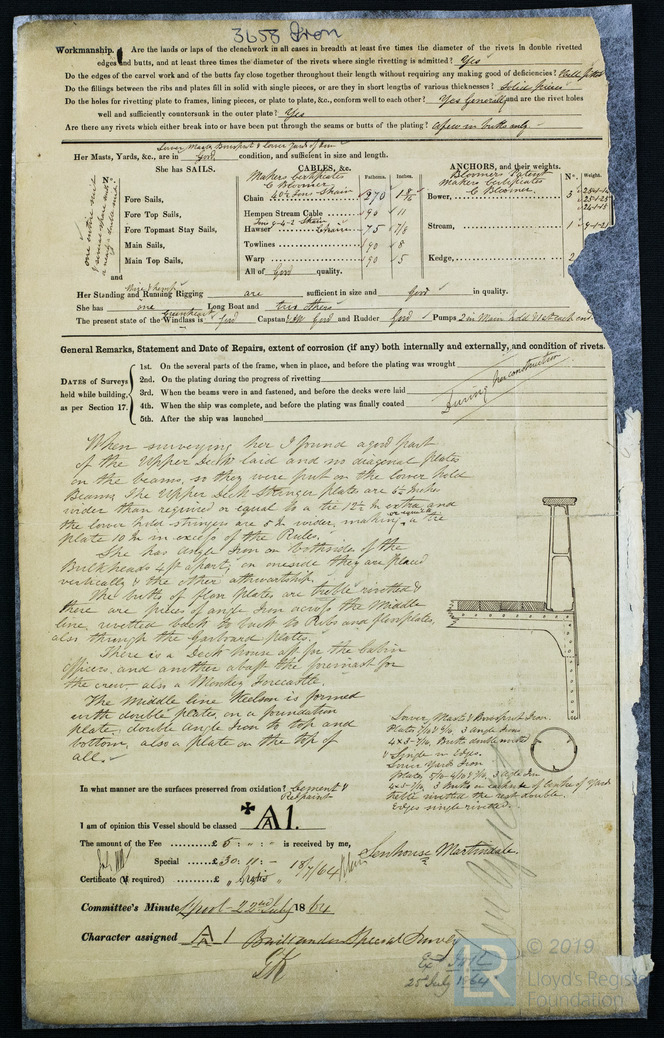 3658 Iron
Workmanship. Are the lands or laps of the clenchwork in all cases in breadth at least five times the diameter of the rivets in double rivetted
edges and butts, and at least three times the diameter of the rivets where single rivetting is admitted? Yes
Do the edges of the carvel work and of the butts fay close together throughout their length without requiring any making good of deficiencies? Well fitted
Do the fillings between the ribs and plates fill in solid with single pieces, or are they in short lengths of various thicknesses? Solid pieces
Do the holes for rivetting plate to frames, lining pieces, or plate to plate, &c., conform well to each other? Yes Generally and are the rivet holes
well and sufficiently countersunk in the outer plate? Yes
Are there any rivets which either break into or have been put through the seams or butts of the plating? A few in butts only
Lower Masts Bowsprit & lower yards of Iron
Her Masts, Yards, &c., are in good condition, and sufficient in size and length.
She has SAILS.
N°.
one entire suit
Fore Sails,
Fore Top Sails,
Fore Topmast Stay Sails,
Main Sails,
Main Top Sails,
and
CABLES, &c. Fathoms. Inches.
Makers Certificates
C Bloomer
Chain 270
Hempen Stream Cable 90 11
Hawser Chain 75 7/8
Towlines 90 8
Warp 90 5
All of Good quality.
ANCHORS, and their weights. N°. Weight.
Bloomers Patent
Makers Certificates
C Bloomer
Bower, 3
Stream, 1
Kedge, 2
Wire & hemp
Her Standing and Running Rigging are sufficient in size and good in quality.
She has one Long Boat and two others
The present state of the Windlass is Good Capstan Good and Rudder Good Pumps 2 in Main hold & 1 at each end
General Remarks, Statement and Date of Repairs, extent of corrosion (if any) both internally and externally, and condition of rivets.
DATES of Surveys
held while building,
as per Section 17.
1st. On the several parts of the frame, when in place, and before the plating was wrought
2nd. On the plating during the progress of rivetting
3rd. When the beams were in and fastened, and before the decks were laid
4th. When the ship was complete, and before the plating was finally coated
5th. After the ship was launched
During her construction
When surveying her I found a good part
of the Upper Deck laid and no diagonal plates
on the beams, so they were put on the lower hold
Beams, The Upper Deck Stringer plate are 6½ Inches
wider than required or equal to a tie 12½ In extra, and
the lower hold stringers are 5 In wider, making or equal to a tie
plate 10 In in excess of the Rules.
She has angle Iron on both side of the
Bulkheads 4 ft apart, on one side they are placed
vertically & the other athwartship.
The butts of floor plates are treble rivetted &
there are pieces of angle Iron across the middle
line, rivetted back to back to Ribs and floorplates,
also through the Garboard plates.
There is a Deck house aft for the Cabin
Officers, and another abaft the foremast for
the crew, also a Monkey Forecastle.
The Middle line Keelson is formed
with double plates, on a foundation
plate, double Angle Iron to top and
bottom, also a plate on the top of
all.
Lower Masts & Bowsprit Iron.
Plates 7/16 & 6/16, 3 angle Iron
4 x 3 - 7/16, Butts double rivetted
& Single in Edges.
Lower Yards Iron
Plates 5/16 4/16 & 3/16, 3 Angle Iron
3 Butts on each side of centre of Yard
treble rivetted the rest double.
Edges single rivetted.
In what manner are the surfaces preserved from oxidation? Cement &
Red paint
I am of opinion this Vessel should be classed A1.
The amount of the Fee £ 5 : " : " is received by me,
Special £ 30 : 11 : - 18/7/64
Certificate (if required) £ " Gratis "
Senhouse Martindale.
Committee's Minute L'pool - 22nd July 1864
Character assigned A 1 Built under Special Survey
25 July 1864
LR
© 2019
Lloyd's Register
Foundation